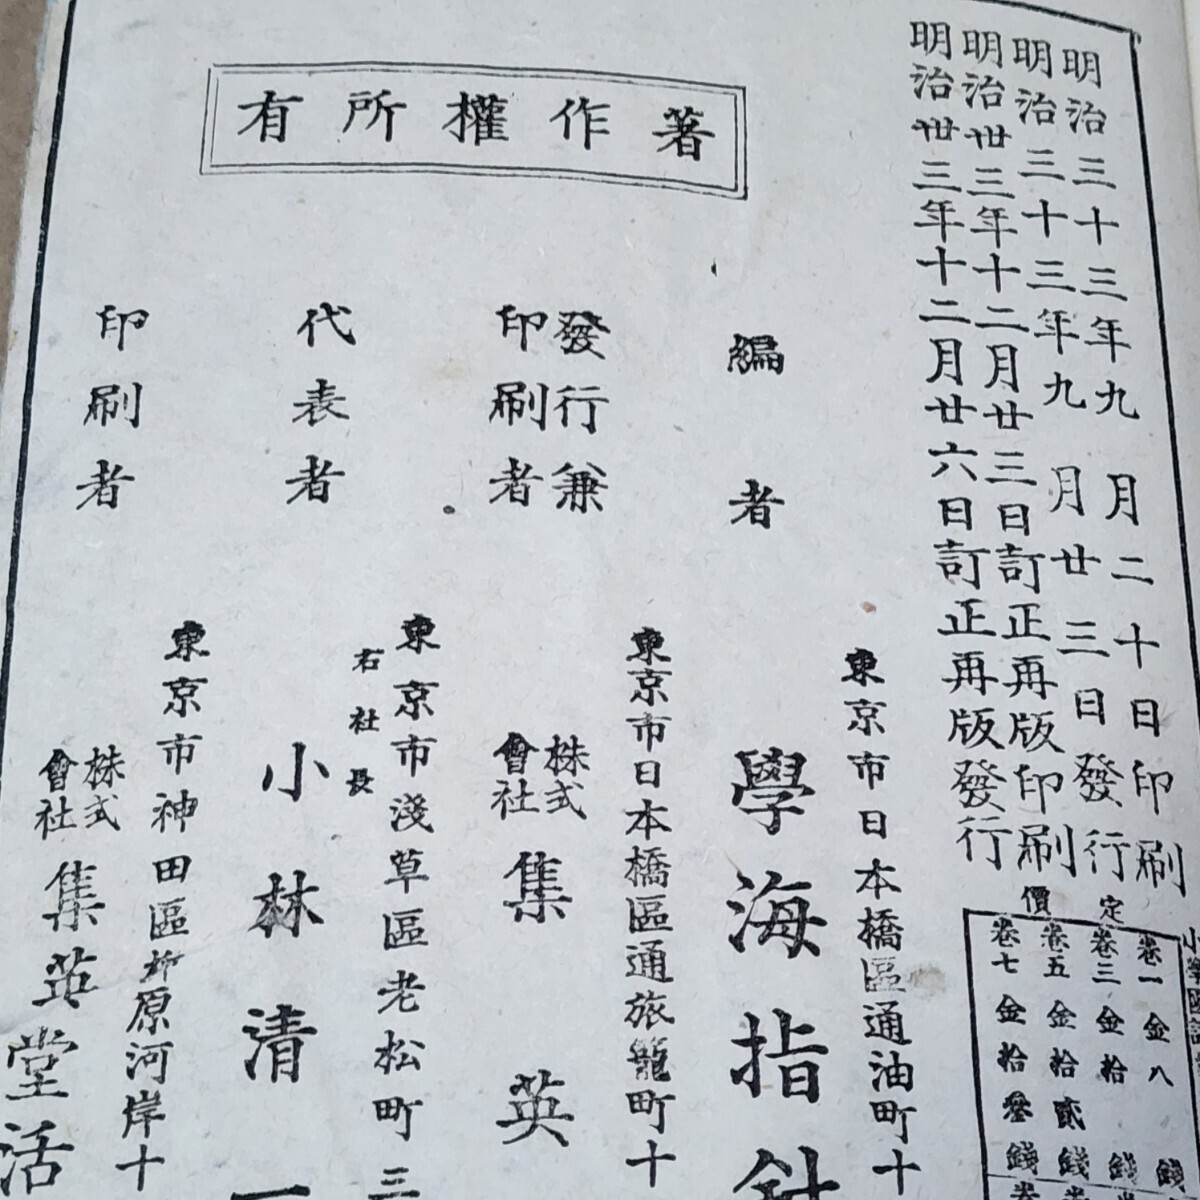 明治三十三年九月二十日印刷
明治三十三年九月廿三日發行
明治卅三年十二月廿三日訂正再版印刷
明治卅三年十二月廿六日訂正再版發行
定價
卷一金八錢
卷三金拾錢
卷五金拾貳錢
卷七金拾參錢
著作權所有
東京市日本橋區通油町十
編者 學海指針
東京市日本橋區通旅籠町十
發行兼印刷者 株式會社 集英
東京市淺草區老松町三
代表者 右社長 小林清一
東京市神田區柳原河岸十
印刷者 株式會社 集英堂活